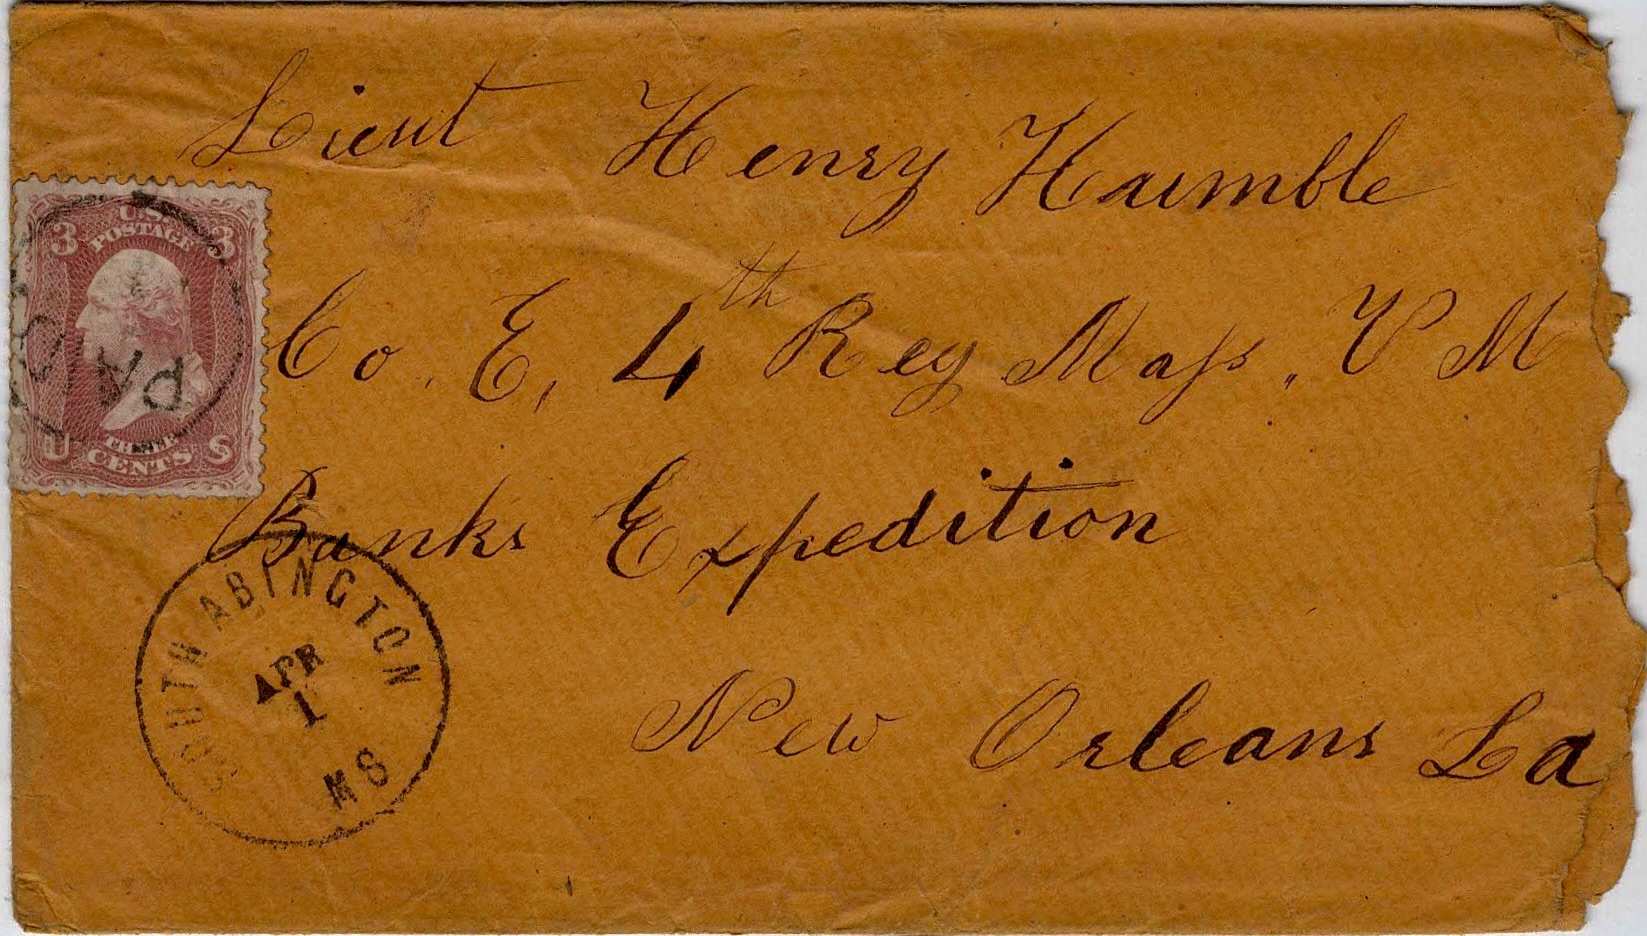 Lieut Henry Humble
Co. E, 4th Reg Mass. V M
Banks Expedition
New Orleans La
U.S.
POSTAGE
3 3
THREE
U CENTS S
PAID
SOUTH ABINGTON
APR
1
MS